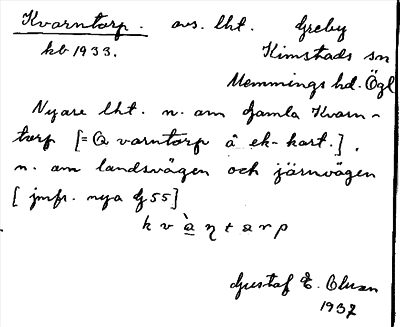 Kvarntorp. avs. lht. Greby
kb 1933. Kimstads sn
Memmings hd. Ögl
Nyare lht. n. om Gamla Kvarn-
torp [= Qvarntorp å ek-kart.],
n. om landsvägen och järnvägen
[jmfr. nya G55]
kvà̱ɳtorp
Gustaf E. Olsson
1937